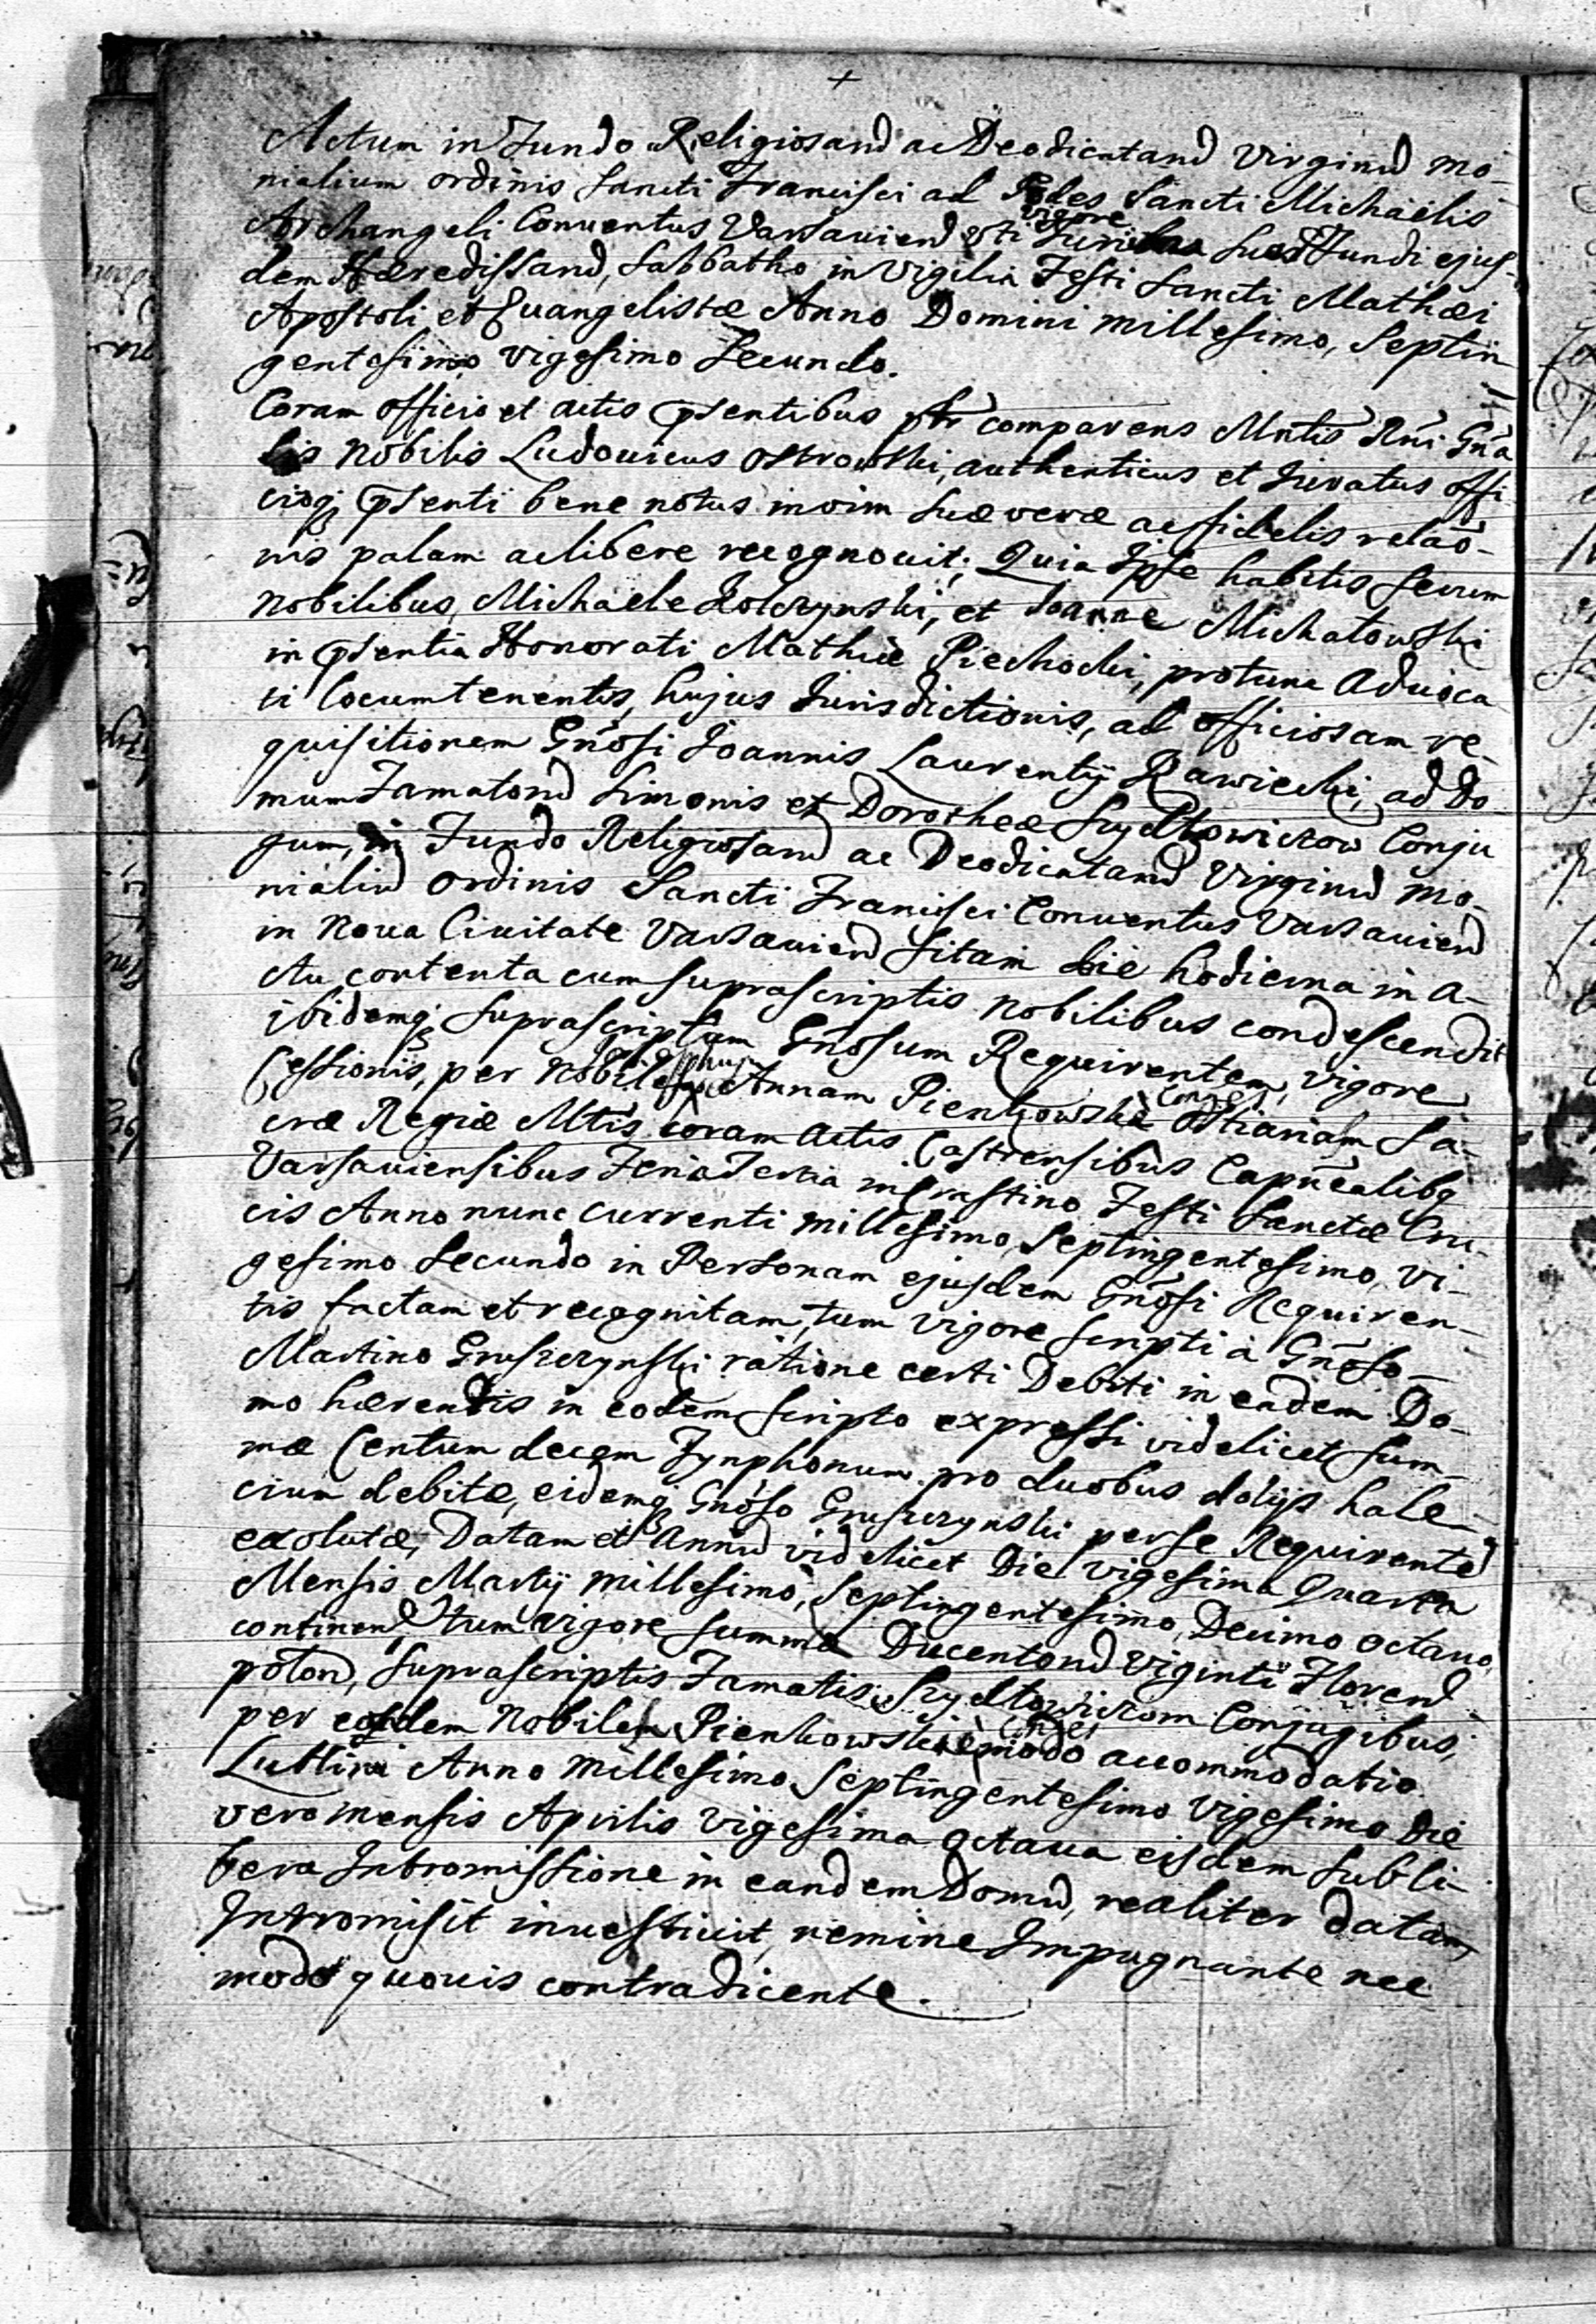 +
Actum in Fundo Religiosaru ac Deodicataru Virginu mo-
nialium ordinis Sancti Francisci ad Ædes Sancti Michaëlis
Archangeli Conventus Varsavien uti vigore Juris sui Fundi ejus-
dem Hæredissaru, Sabbatho in Vigilia Festi Sancti Mathæi
Apostoli et Evangelistæ Anno Domini millesimo, Septin
gentesimo vigesimo Secundo.
Coram officio et actis pñsentibus comparens Mñtis Rñi Gñã
lis Nobilis Ludovicus Ostrowski, authenticus et Juratus offi
cioq pñsenti bene notus in vim suæ veræ ac fidelis relaõ-
nis palam ac libere recognovit; Quia Ipse habitis secum
Nobilibus, Michaele Kolczynski, et Joanne Michatowski
in pñsentia Honorati Mathiæ Piechocki, protunc Advoca
ti locumtenentis, hujus Jurisdictionis, ad officiosam re-
quisitionem Gñosi Joannis Laurentij Rawiecki, ad Do
mum Famatoru Simonis et Dorotheæ Szydtowiczow Conju
gum, in Fundo Religiosaru ac Deodicataru Virginu Mo-
nialiu Ordinis Sancti Francisci Conventus Varsavien
in Nova Civitate Varsavien sitam die hodierna in A-
ctu contenta cum suprascriptis Nobilibus condescendit
ibidemq suprascriptum Gñosum Requirentem, vigore
Cessionis, per Nobilem Annam Pienkowska Ostiariam Sa-
cræ Regiæ Mtis coram actis Castrensibus Capñealibq
Varsaviensibus Feria Tertia in Crastino Festi Sanctæ Cru-
cis Anno nunc currenti millesimo, Septingentesimo, vi-
gesimo Secundo in Personam ejusdem Gñosi Requiren-
tis factam et recognitam, tum vigore scripti à Gñoso
Martino Gruszczynski ratione certi Debiti in eadem Do-
mo hærentis in eodem scripto expressi videlicet sum-
mæ Centum decem Tynphonum pro duobus dolijs hale-
cium debitæ, eidemq Gñoso Gruszczynski per se Requirente
exolutæ, Datam et Annu videlicet Die vigesima Quarta
Mensis Martij millesimo, Septingentesimo, Decimo octavo,
continen tum vigore summæ Ducentoru Viginti Floren
poton, suprascriptis Famatis Szydtowiczom Conjugibus,
per eandem Nobilem Pienkowska modo accommodatio
Lublini Anno millesimo Septingentesimo Vigesimo Die
vero mensis Aprilis Vigesima octava eisdem sub li-
bera Intromissione in eandem Domu, realiter datam,
Intromisit investivit, nemine Impugnante nec
modo quovis contradicente.